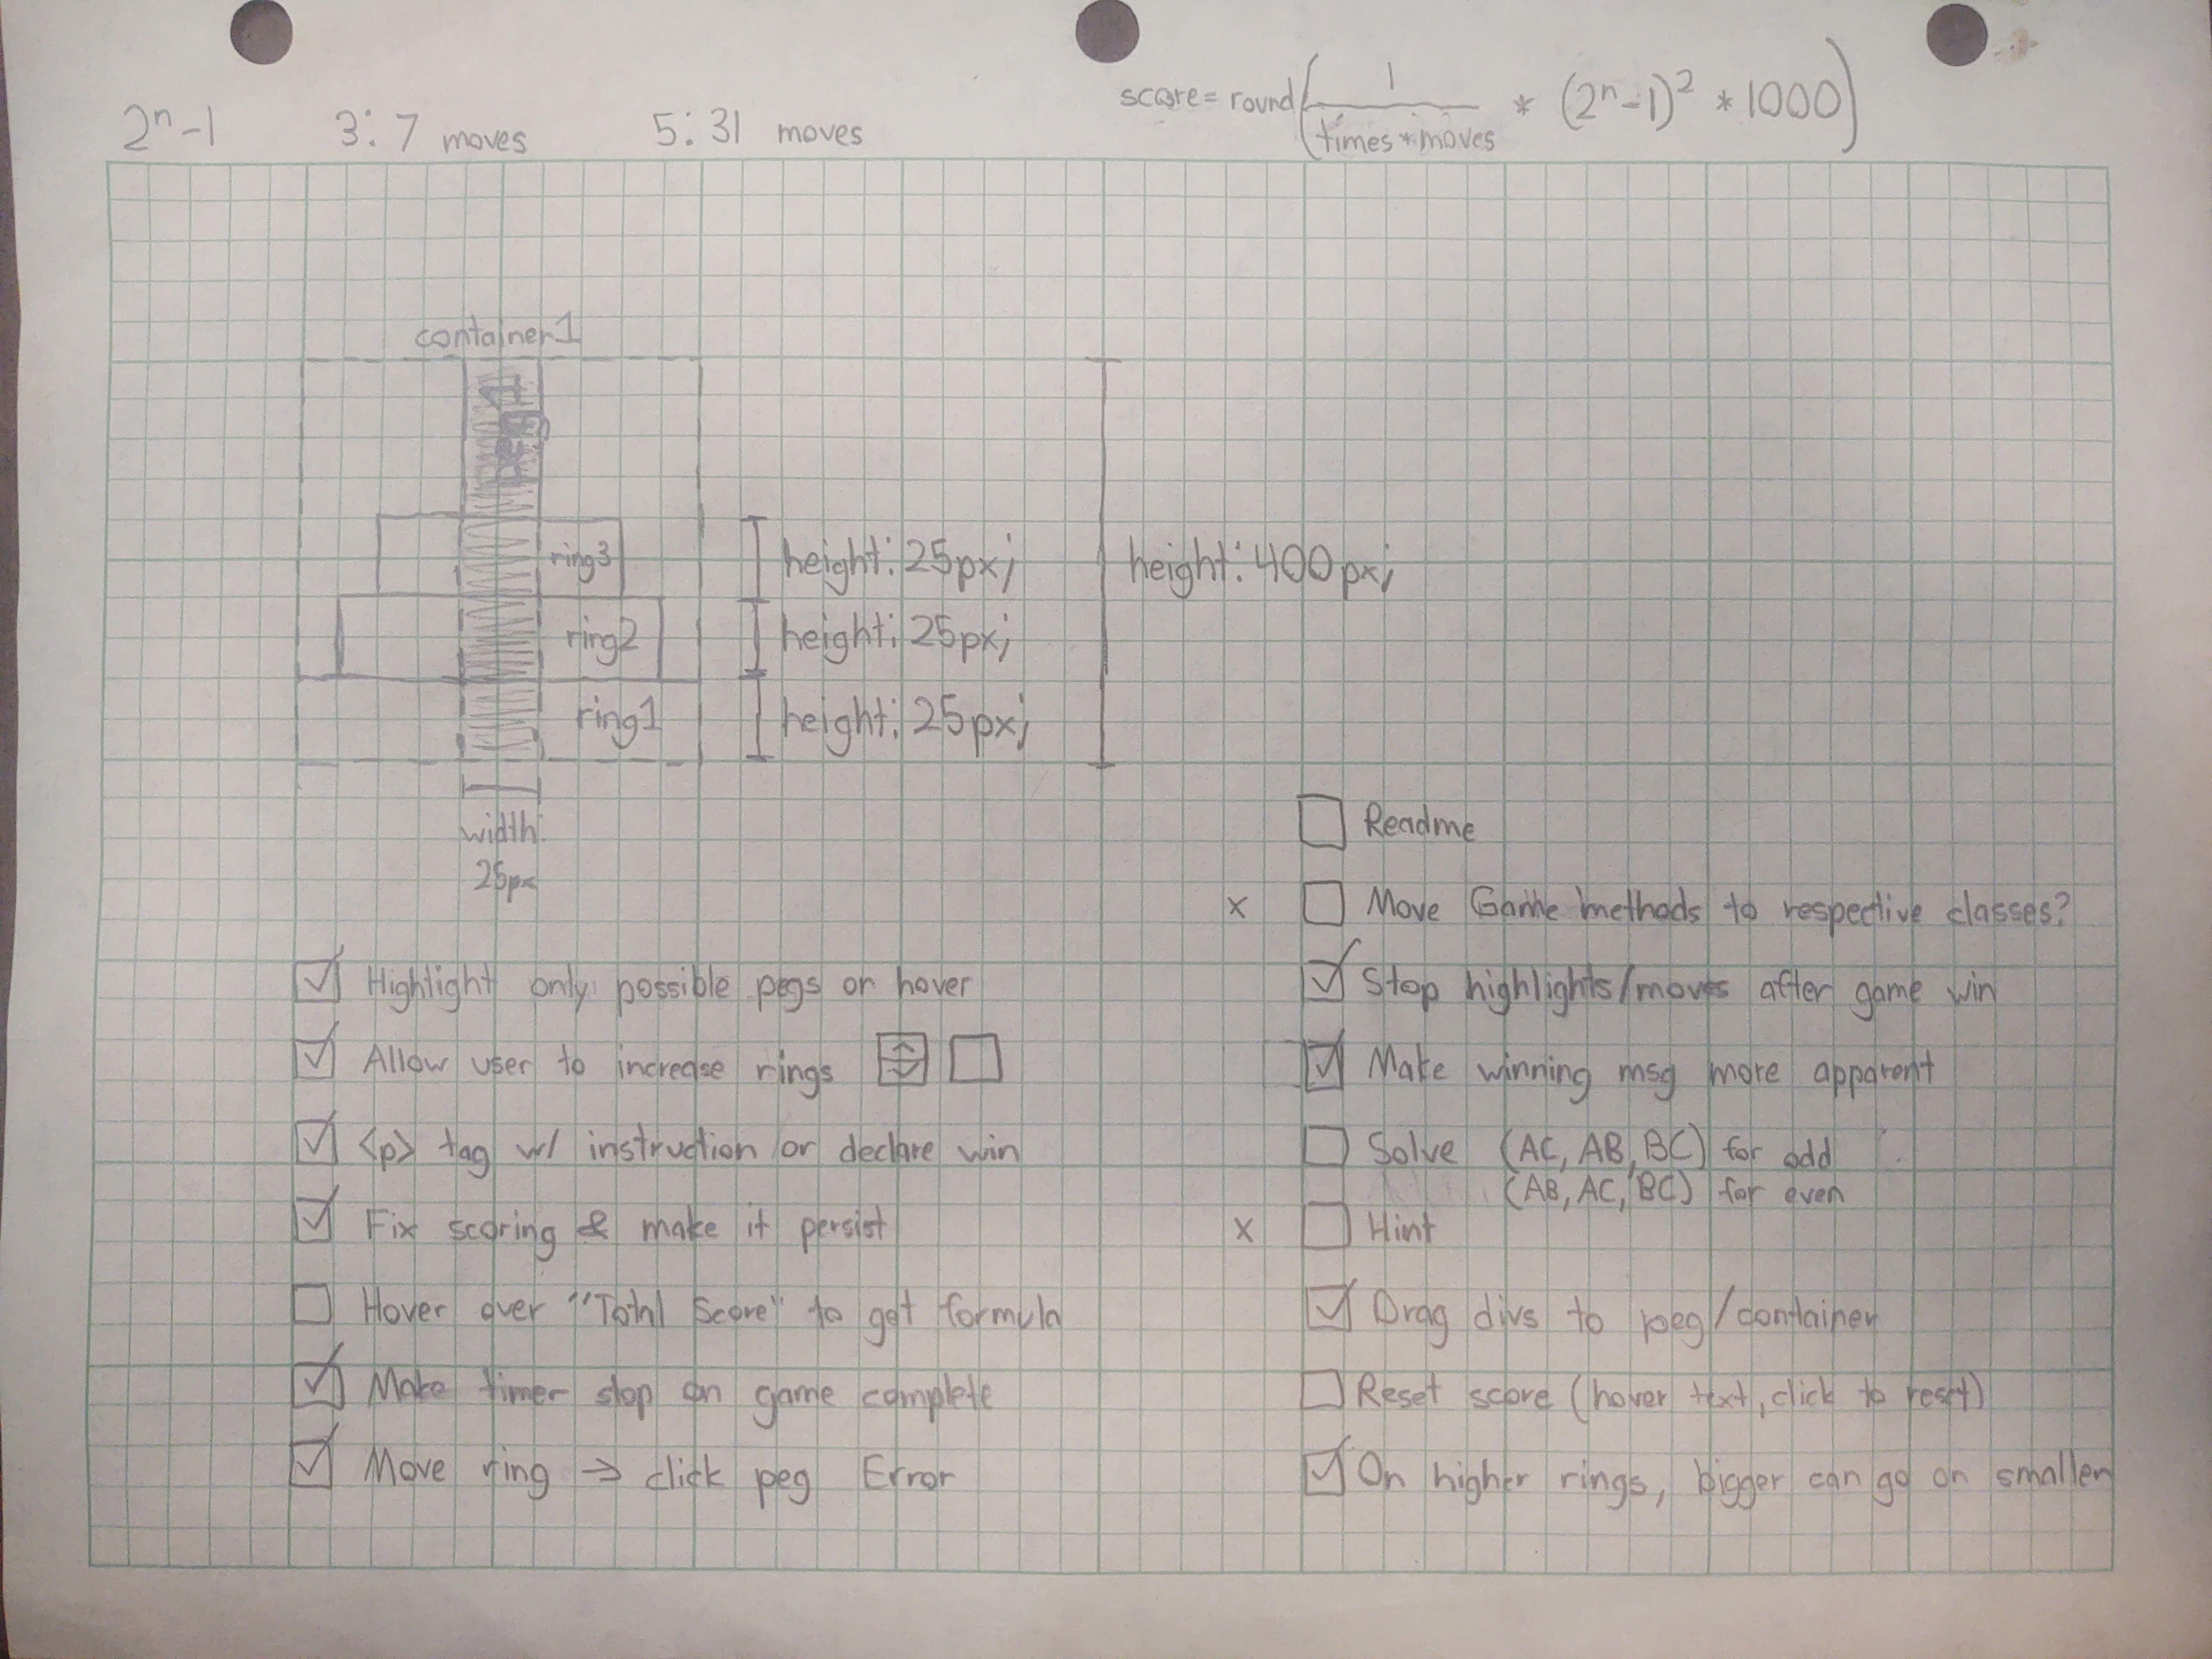 score = round(1/(times * moves) * (2ⁿ-1)² * 1000)
2ⁿ-1 3: 7 moves 5: 31 moves
container1
peg1
ring3 height: 25px; height: 400px;
ring2 height: 25px;
ring1 height: 25px;
width:
25px
Highlight only possible pegs or hover
Allow user to increase rings
<p> tag w/ instruction or declare win
Fix scoring & make it persist
Hover over "Total Score" to get formula
Make timer stop on game complete
Move ring → click peg Error
Readme
x Move Game methods to respective classes?
Stop highlights/moves after game win
Make winning msg more apparent
Solve (AC, AB, BC) for odd
(AB, AC, BC) for even
x Hint
Drag divs to peg/container
Reset score (hover text, click to reset)
On higher rings, bigger can go on smaller